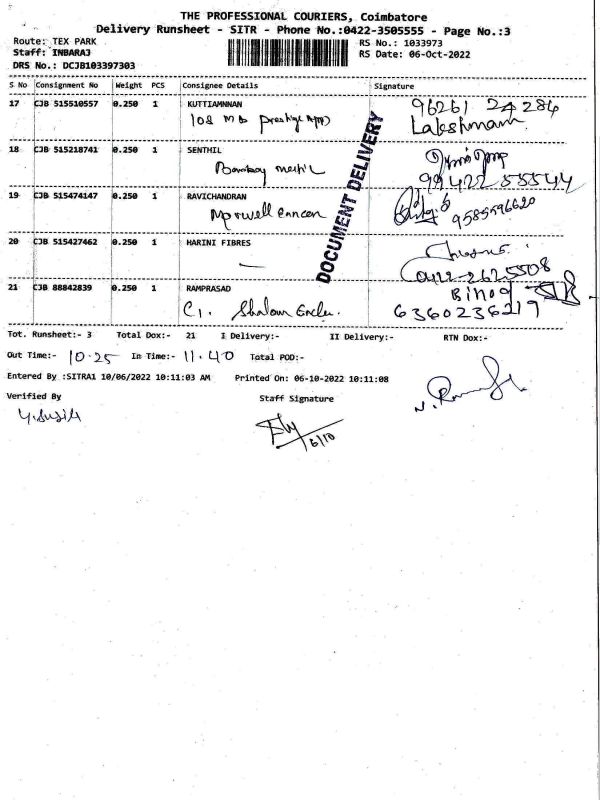 THE PROFESSIONAL COURIERS, Coimbatore
Delivery Runsheet - SITR - Phone No.:0422-3505555 - Page No.:3
Route: TEX PARK
RS No.: 1033973
Staff: INBARAJ
RS Date: 06-Oct-2022
DRS No.: DCJB103397303
S No Consignment No Weight PCS Consignee Details Signature
17 CJB 515510557 0.250 1 KUTTIAMNNAN 96261 24284
108 prestige Lakshmanan
18 CJB 515218741 0.250 1 SENTHIL
Bombay 99422 55544
19 CJB 515474147 0.250 1 RAVICHANDRAN
9585596620
20 CJB 515427462 0.250 1 HARINI FIBRES
0422-2625508
21 CJB 88842839 0.250 1 RAMPRASAD Binod
C1. Shalom 6360236219
DOCUMENT DELIVERY
Tot. Runsheet:- 3 Total Dox:- 21 I Delivery:- II Delivery:- RTN Dox:-
Out Time:- 10.25 In Time:- 11.40 Total POD:-
Entered By :SITRA1 10/06/2022 10:11:03 AM Printed On: 06-10-2022 10:11:08
Verified By Staff Signature
6/10